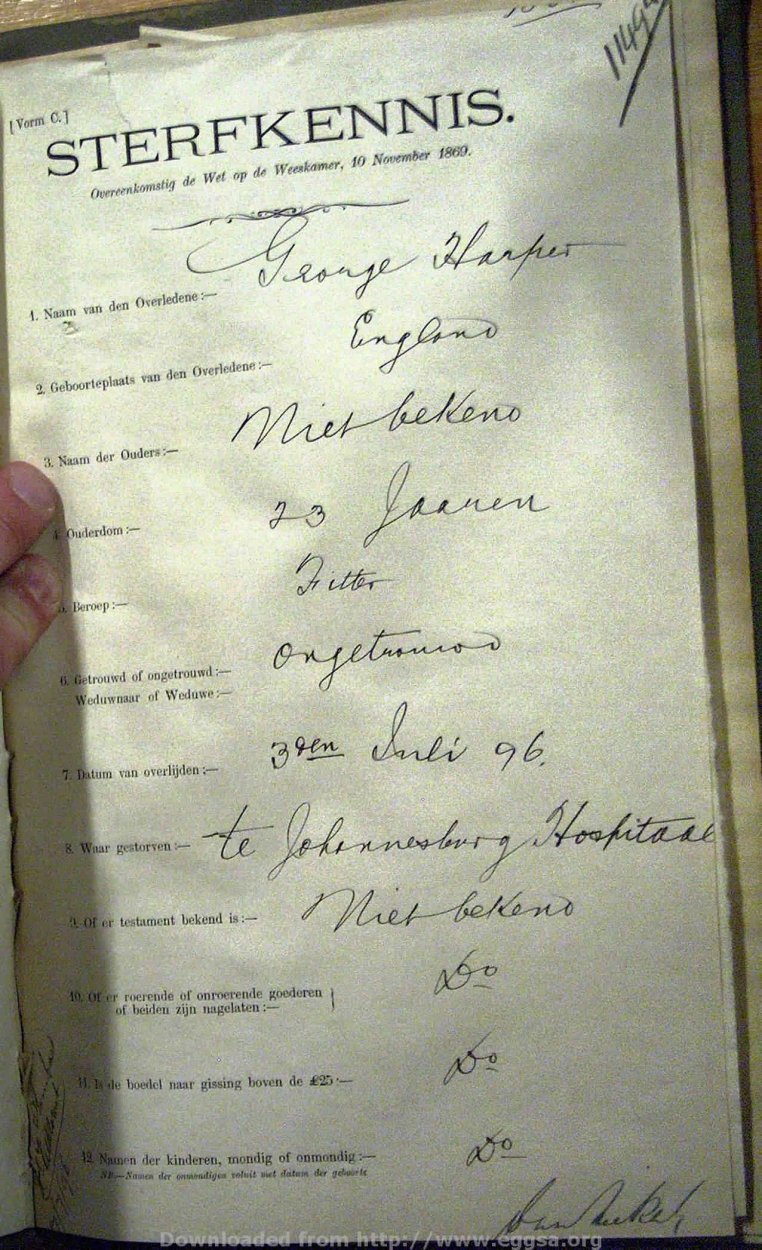 11494
[Vorm C.]
STERFKENNIS.
Overeenkomstig de Wet op de Weeskamer, 10 November 1869.
George Harper
1. Naam van den Overledene :—
England
2. Geboorteplaats van den Overledene :—
Niet bekend
3. Naam der Ouders :—
23 Jaaren
4. Ouderdom :—
Fitter
5. Beroep :—
Ongetrouwd
6. Getrouwd of ongetrouwd :—
Weduwnaar of Weduwe :—
3den Juli 96.
7. Datum van overlijden :—
te Johannesburg Hospitaal
8. Waar gestorven :—
Niet bekend
9. Of er testament bekend is :—
Do
10. Of er roerende of onroerende goederen }
of beiden zijn nagelaten :—
Do
11. Is de boedel naar gissing boven de £25 :—
Do
12. Namen der kinderen, mondig of onmondig :—
NB.—Namen der onmondigen voluit met datum der geboorte
Downloaded from http://www.eggsa.org